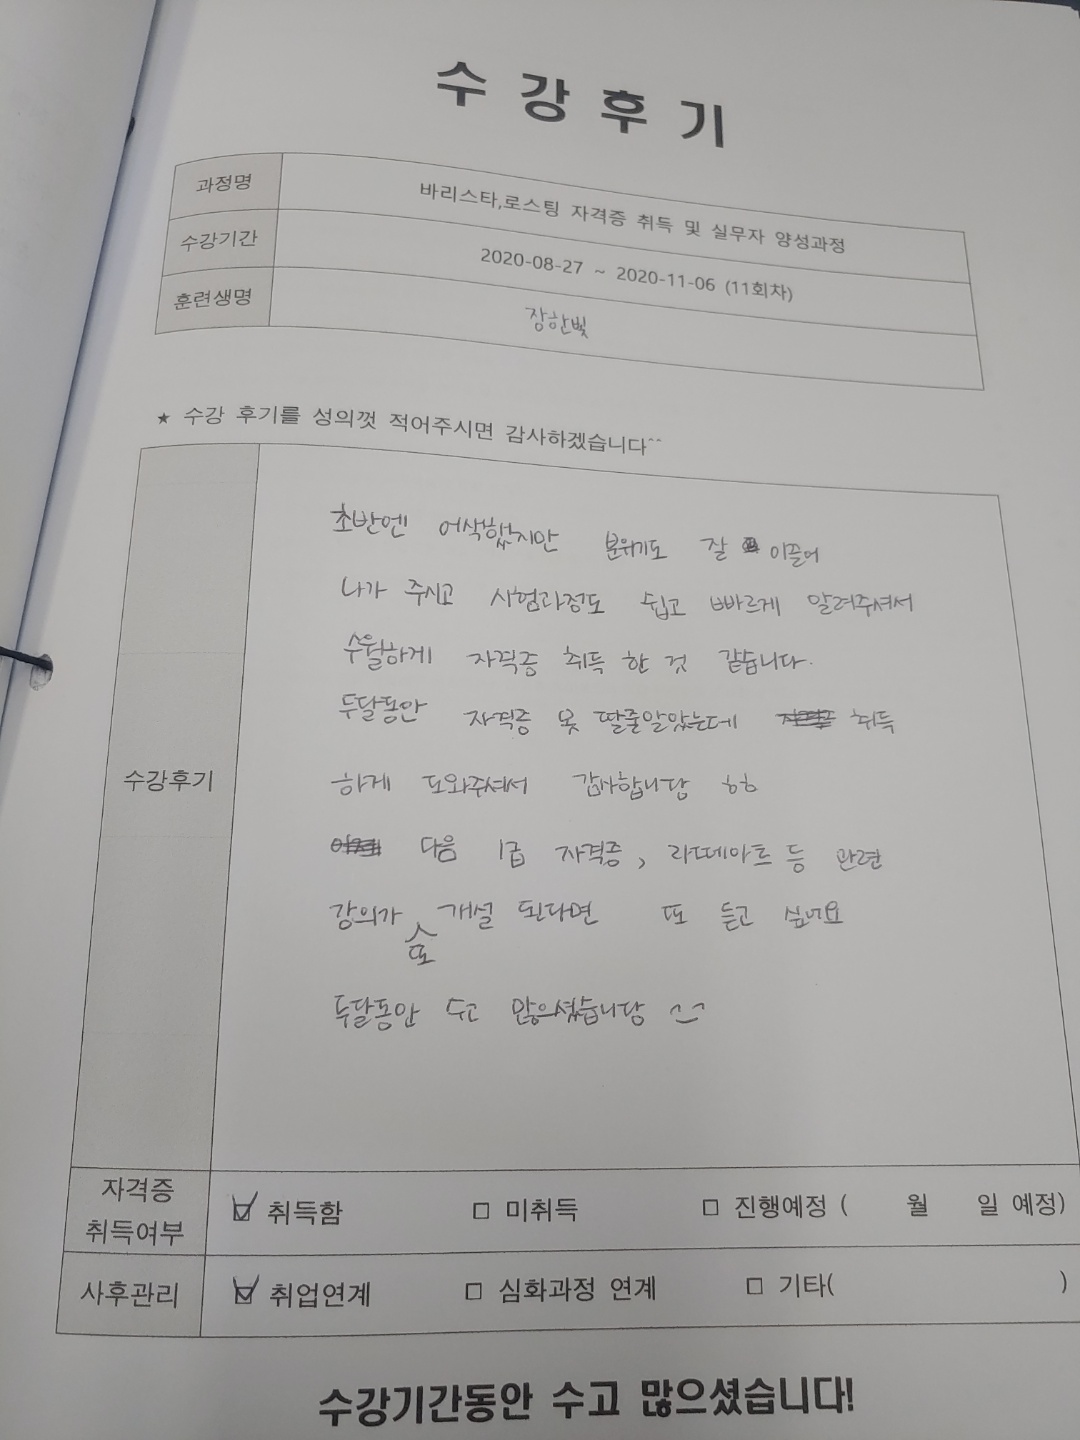 수강후기
과정명 바리스타,로스팅 자격증 취득 및 실무자 양성과정
수강기간 2020-08-27 ~ 2020-11-06 (11회차)
훈련생명 장한빛
★ 수강 후기를 성의껏 적어주시면 감사하겠습니다^^
수강후기
초반엔 어색했지만 분위기도 잘 이끌어
나가 주시고 시험과정도 쉽고 빠르게 알려주셔서
수월하게 자격증 취득 한 것 같습니다.
두달동안 자격증 못 딸줄알았는데 취득
하게 도와주셔서 감사합니당 ㅎㅎ
다음 1급 자격증, 라떼아트 등 관련
강의가 또 개설 된다면 또 듣고 싶네요
두달동안 수고 많으셨습니당 ^_^
자격증 취득여부 ☑ 취득함 □ 미취득 □ 진행예정 ( 월 일 예정)
사후관리 ☑ 취업연계 □ 심화과정 연계 □ 기타( )
수강기간동안 수고 많으셨습니다!